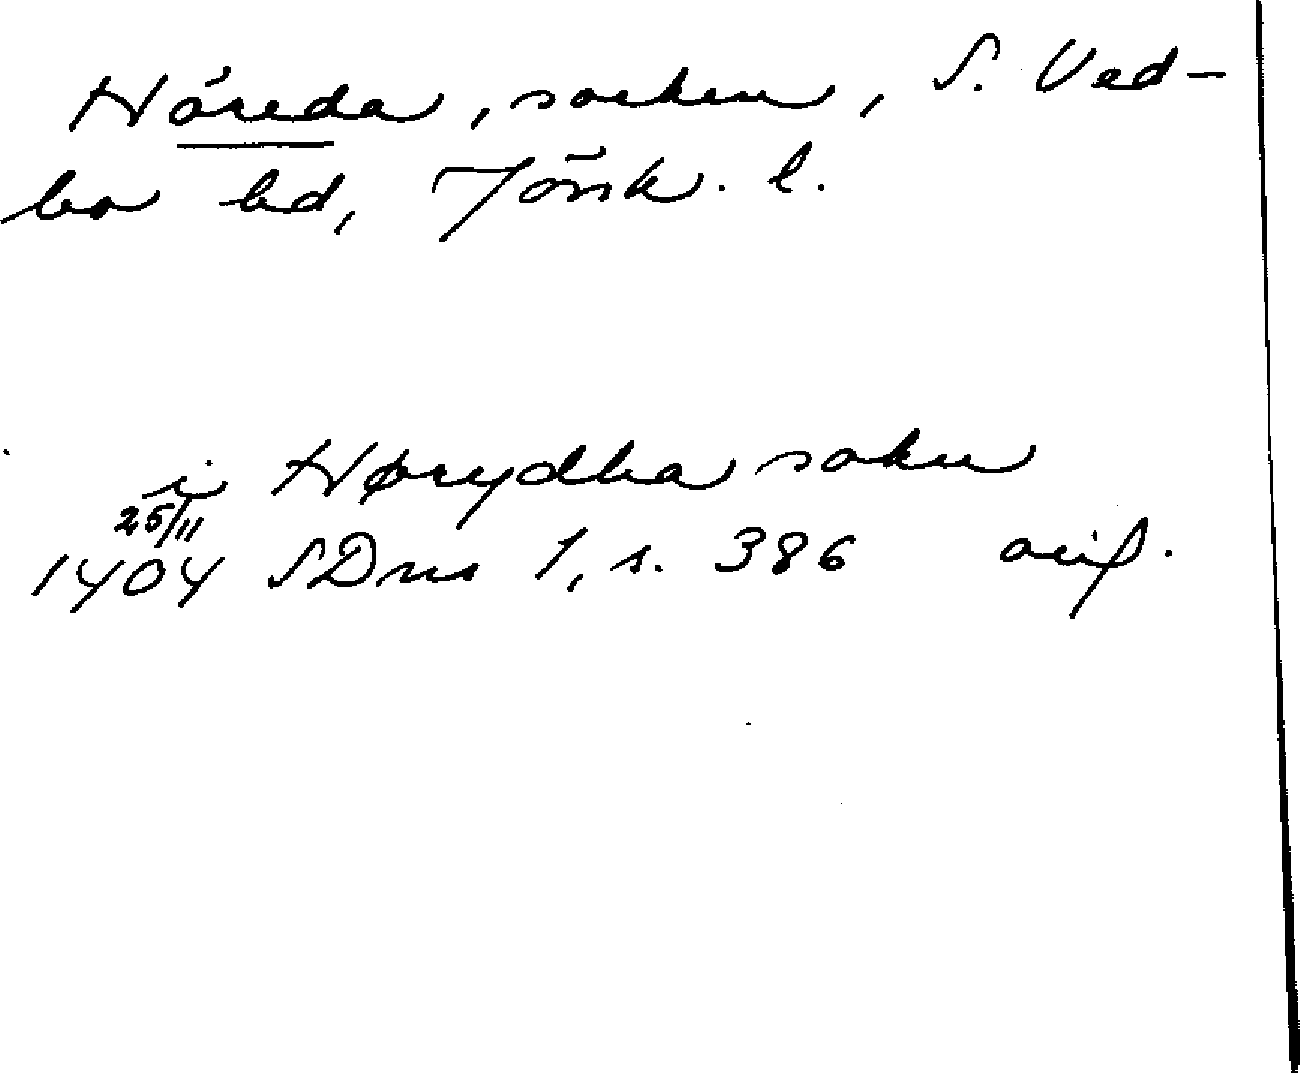 Höreda, socken, S. Ved-
bo hd, Jönk. l.
i Hørydha sokn
25/11
1404 SDns 1, s. 386 avs.